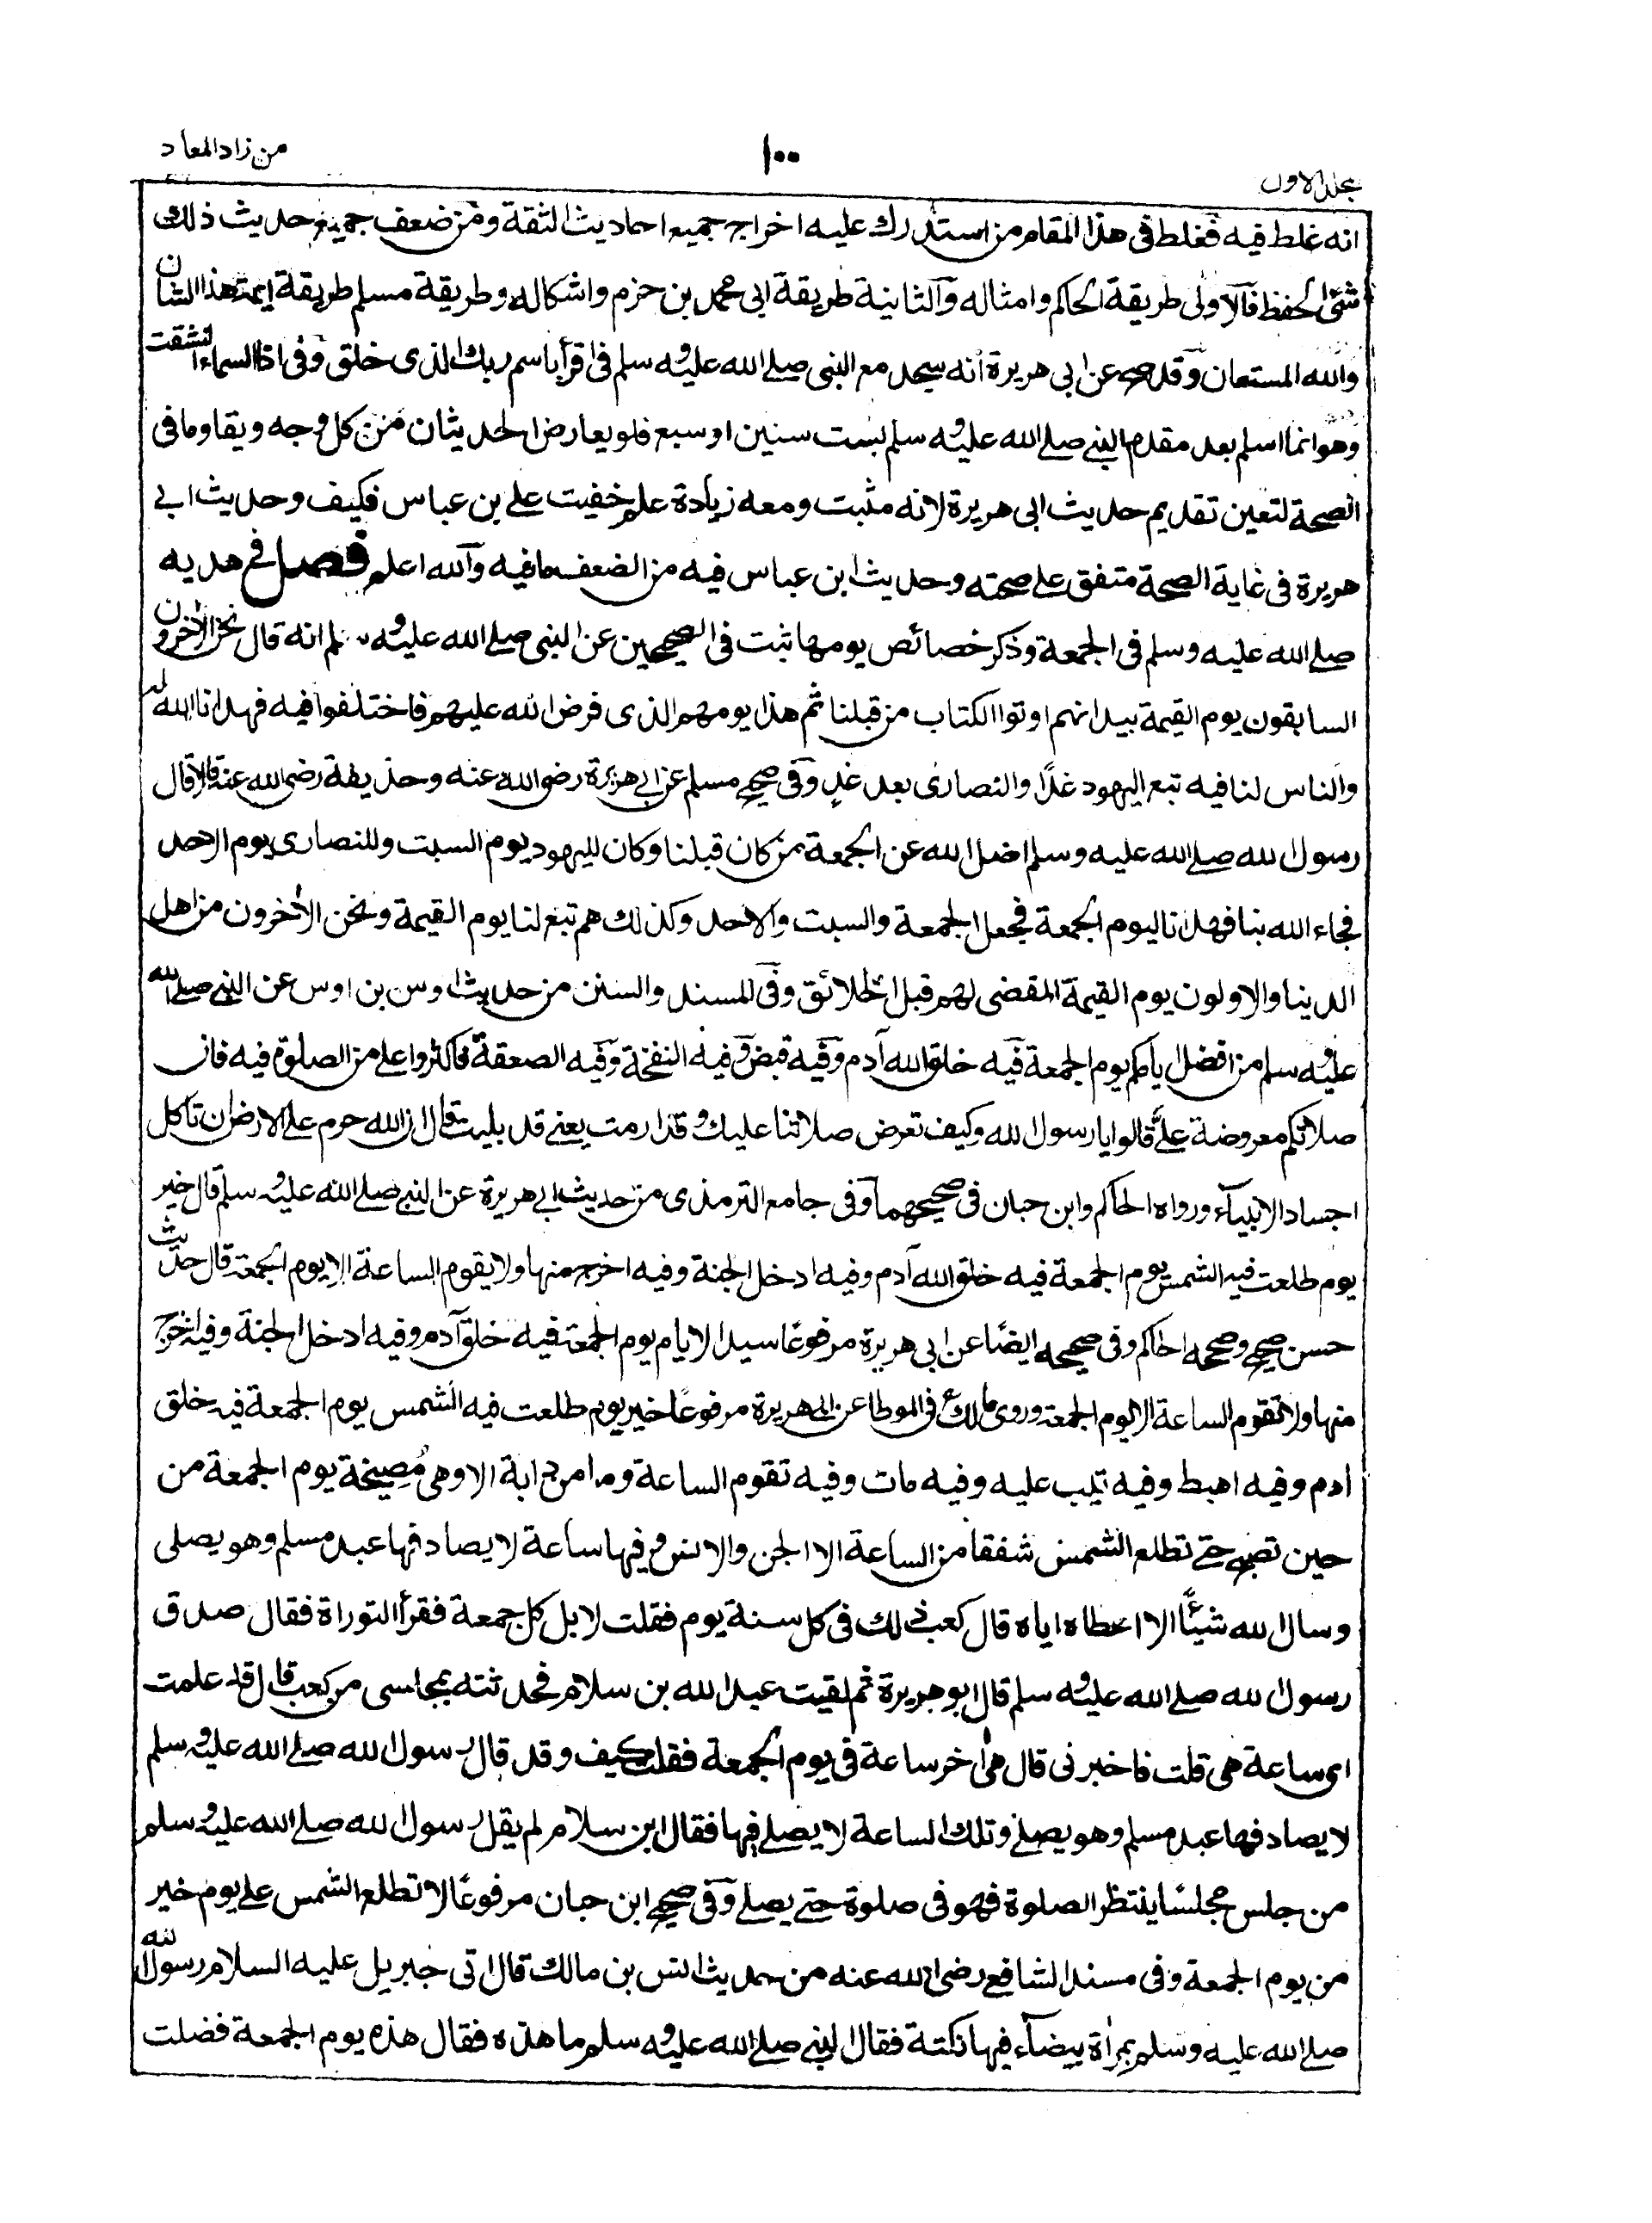 مجلد الاول
١٠٠
من زاد المعاد
انه غلط فيه فغلط فى هذا المقام من استدرك عليه اخراج جميع احاديث الثقة ومن ضعف جميع حديث ذلك
سئ الحفظ فالاولى طريقة الحاكم وامثاله والثانية طريقة ابى محمد بن حزم واشكاله وطريقة مسلم طريقة ايمة هذا الشان
والله المستعان وقد صح عن ابى هريرة انه سجد مع النبى صلى الله عليه وسلم فى اقرأ باسم ربك الذى خلق وفى اذا السماء انشقت
وهو انما اسلم بعد مقدم النبى صلى الله عليه وسلم بست سنين او سبع فلو يعارض الحديثان من كل وجه ويقاوما فى
الصحة لتعين تقديم حديث ابى هريرة لانه مثبت ومعه زيادة علم خفيت على بن عباس فكيف وحديث ابى
هريرة فى غاية الصحة متفق على صحته وحديث ابن عباس فيه من الضعف ما فيه والله اعلم فصل فى هديه
صلى الله عليه وسلم فى الجمعة وذكر خصائص يومها ثبت فى الصحيحين عن النبى صلى الله عليه وسلم انه قال نحن الاخرون
السابقون يوم القيمة بيد انهم اوتوا الكتاب من قبلنا ثم هذا يومهم الذى فرض الله عليهم فاختلفوا فيه فهدانا الله له
والناس لنا فيه تبع اليهود غدًا والنصارى بعد غدٍ وفى صحيح مسلم عن ابى هريرة رضى الله عنه وحذيفة رضى الله عنه قالا قال
رسول الله صلى الله عليه وسلم اضل الله عن الجمعة من كان قبلنا وكان لليهود يوم السبت وللنصارى يوم الاحد
فجاء الله بنا فهدانا ليوم الجمعة فجعل الجمعة والسبت والاحد وكذلك هم تبع لنا يوم القيمة ونحن الاخرون من اهل
الدينا والاولون يوم القيمة المقضى لهم قبل الخلائق وفى المسند والسنن من حديث اوس بن اوس عن النبى صلى الله
عليه وسلم من افضل ايامكم يوم الجمعة فيه خلق الله آدم وفيه قبض وفيه النفخة وفيه الصعقة فاكثروا على من الصلوة فيه فان
صلاتكم معروضة علىَّ قالوا يا رسول الله وكيف تعرض صلاتنا عليك وقد ارمت يعنى قد بليت قال ان الله حرم على الارض ان تاكل
اجساد الانبيآء ورواه الحاكم وابن حبان فى صحيحهما وفى جامع الترمذى من حديث ابى هريرة عن النبى صلى الله عليه وسلم قال خير
يوم طلعت فيه الشمس يوم الجمعة فيه خلق الله آدم وفيه ادخل الجنة وفيه اخرج منها ولا يقوم الساعة الا يوم الجمعة قال حديث
حسن صحيح وصححه الحاكم وفى صحيحه ايضًا عن ابى هريرة مرفوعًا سيد الايام يوم الجمعة فيه خلق آدم وفيه ادخل الجنة وفيه اخرج
منها ولا تقوم الساعة الا يوم الجمعة وروى مالك فى الموطا عن ابى هريرة مرفوعًا خير يوم طلعت فيه الشمس يوم الجمعة فيه خلق
ادم وفيه اهبط وفيه تيب عليه وفيه مات وفيه تقوم الساعة وما من دابة الا وهى مُصِيخة يوم الجمعة من
حين تصبح حتى تطلع الشمس شفقا من الساعة الا الجن والانس وفيها ساعة لا يصادفها عبد مسلم وهو يصلى
وسال الله شيئًا الا اعطاه اياه قال كعب ذلك فى كل سنة يوم فقلت لا بل كل جمعة فقرأ التوراة فقال صدق
رسول الله صلى الله عليه وسلم قال ابو هريرة ثم لقيت عبد الله بن سلام فحدثته بمجلسى مع كعب قال قد علمت
اى ساعة هى قلت فاخبرنى قال هى اخر ساعة فى يوم الجمعة فقلت كيف وقد قال رسول الله صلى الله عليه وسلم
لا يصادفها عبد مسلم وهو يصلى وتلك الساعة لا يصلى فيها فقال ابن سلام لم يقل رسول الله صلى الله عليه وسلم
من جلس مجلسًا ينتظر الصلوة فهو فى صلوة حتى يصلى وفى صحيح ابن حبان مرفوعًا لا تطلع الشمس على يوم خير
من يوم الجمعة وفى مسند الشافعى رضى الله عنه من حديث انس بن مالك قال اتى جبريل عليه السلام رسول الله
صلى الله عليه وسلم بمرأة بيضآء فيها نكتة فقال النبى صلى الله عليه وسلم ما هذه فقال هذه يوم الجمعة فضلت